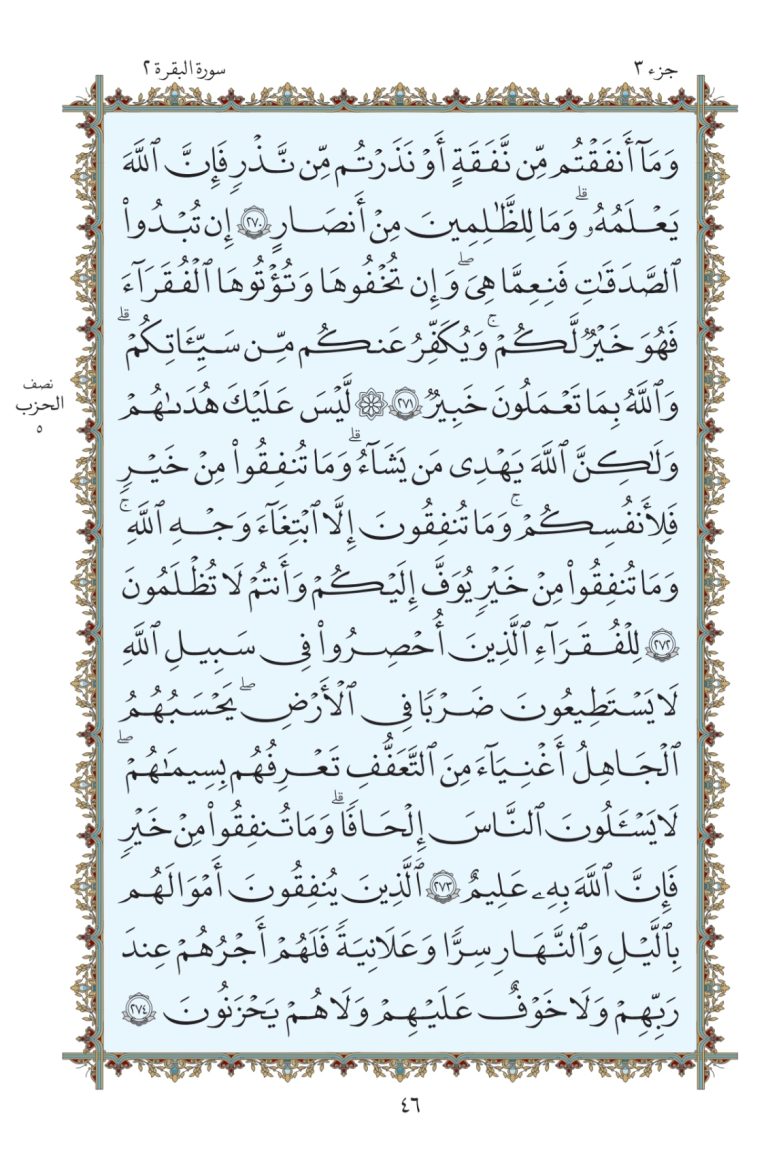 جزء ٣
سورة البقرة ٢
وَمَآ أَنفَقْتُم مِّن نَّفَقَةٍ أَوْ نَذَرْتُم مِّن نَّذْرٍ فَإِنَّ ٱللَّهَ
يَعْلَمُهُۥ ۗ وَمَا لِلظَّٰلِمِينَ مِنْ أَنصَارٍ ٢٧٠ إِن تُبْدُوا۟
ٱلصَّدَقَٰتِ فَنِعِمَّا هِىَ ۖ وَإِن تُخْفُوهَا وَتُؤْتُوهَا ٱلْفُقَرَآءَ
فَهُوَ خَيْرٌ لَّكُمْ ۚ وَيُكَفِّرُ عَنكُم مِّن سَيِّـَٔاتِكُمْ ۗ
وَٱللَّهُ بِمَا تَعْمَلُونَ خَبِيرٌ ٢٧١ ۞ لَّيْسَ عَلَيْكَ هُدَىٰهُمْ
نصف
الحزب
٥
وَلَٰكِنَّ ٱللَّهَ يَهْدِى مَن يَشَآءُ ۗ وَمَا تُنفِقُوا۟ مِنْ خَيْرٍ
فَلِأَنفُسِكُمْ ۚ وَمَا تُنفِقُونَ إِلَّا ٱبْتِغَآءَ وَجْهِ ٱللَّهِ ۚ
وَمَا تُنفِقُوا۟ مِنْ خَيْرٍ يُوَفَّ إِلَيْكُمْ وَأَنتُمْ لَا تُظْلَمُونَ
٢٧٢ لِلْفُقَرَآءِ ٱلَّذِينَ أُحْصِرُوا۟ فِى سَبِيلِ ٱللَّهِ
لَا يَسْتَطِيعُونَ ضَرْبًا فِى ٱلْأَرْضِ ۖ يَحْسَبُهُمُ
ٱلْجَاهِلُ أَغْنِيَآءَ مِنَ ٱلتَّعَفُّفِ تَعْرِفُهُم بِسِيمَٰهُمْ ۖ
لَا يَسْـَٔلُونَ ٱلنَّاسَ إِلْحَافًا ۗ وَمَا تُنفِقُوا۟ مِنْ خَيْرٍ
فَإِنَّ ٱللَّهَ بِهِۦ عَلِيمٌ ٢٧٣ ٱلَّذِينَ يُنفِقُونَ أَمْوَالَهُم
بِٱلَّيْلِ وَٱلنَّهَارِ سِرًّا وَعَلَانِيَةً فَلَهُمْ أَجْرُهُمْ عِندَ
رَبِّهِمْ وَلَا خَوْفٌ عَلَيْهِمْ وَلَا هُمْ يَحْزَنُونَ ٢٧٤
٤٦